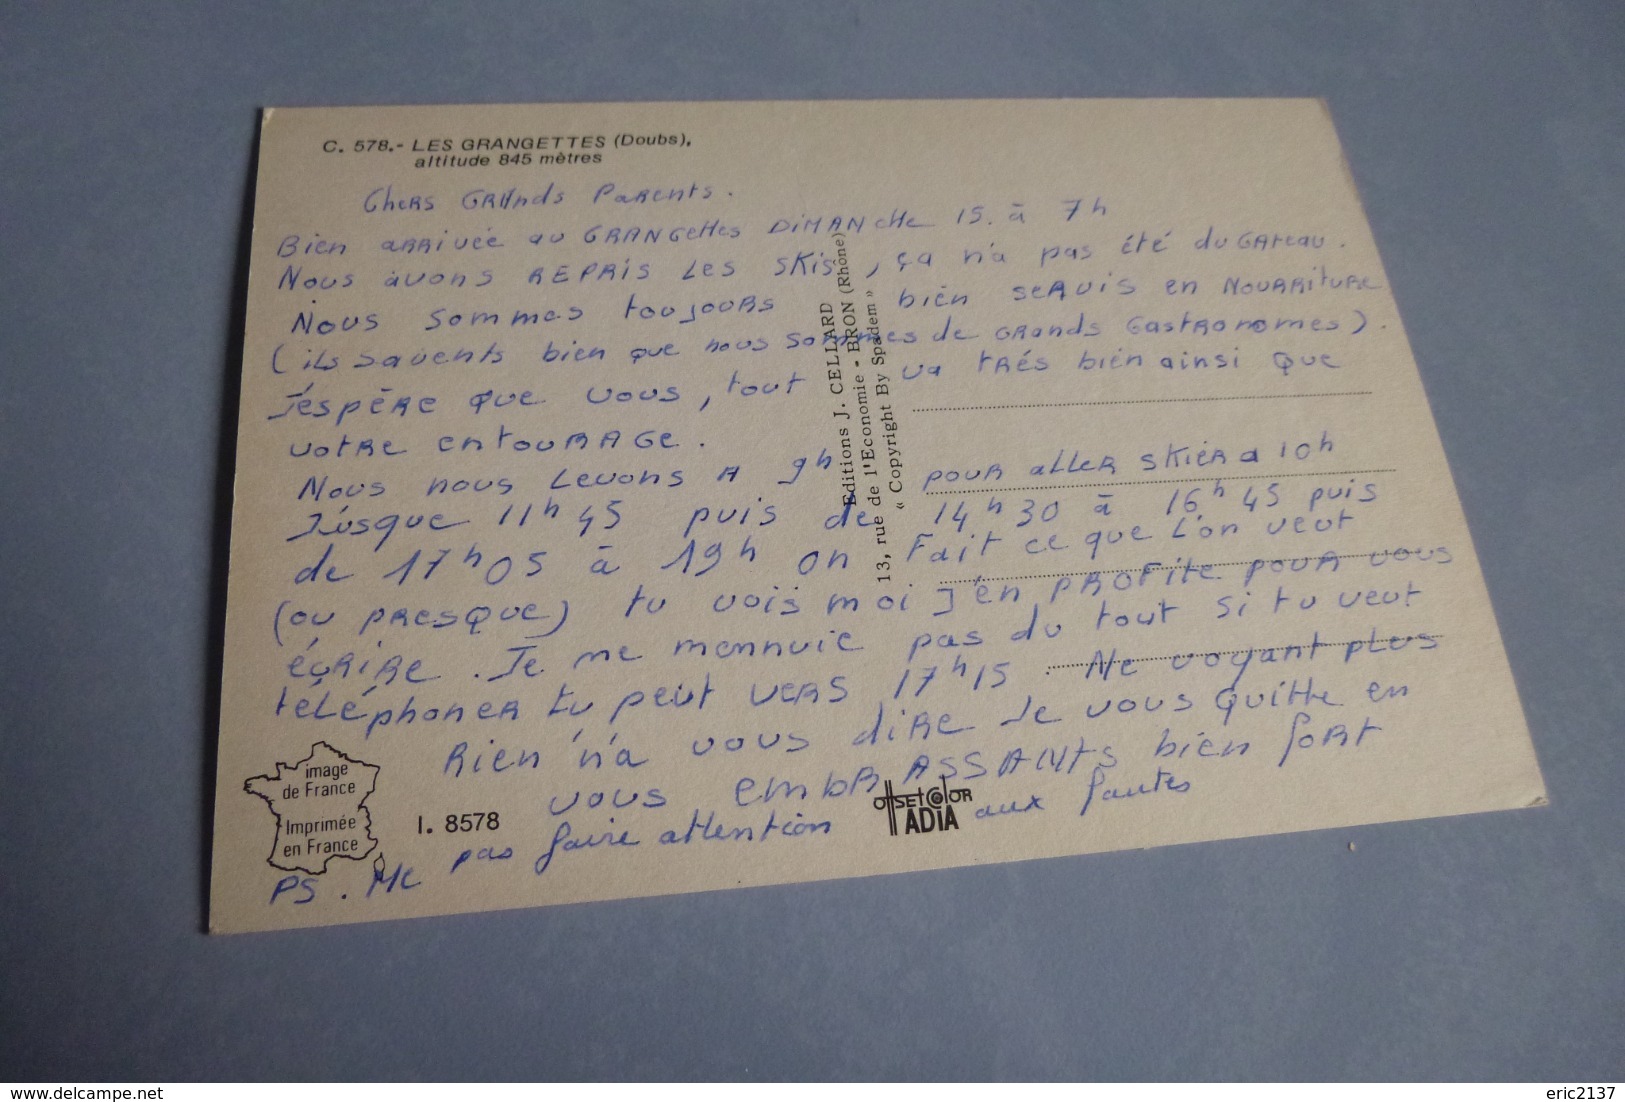 C. 578.- LES GRANGETTES (Doubs),
altitude 845 mètres
Chers GRAnds PaRents.
Bien aRRivée au GRANGettes DiMANche 15. à 7h
Nous avons REPRis Les skis, ça n'a pas été du GAteau.
Nous sommes toujouRs bien seRvis en NouRRituRe
(ils savents bien que nous sommes de GRands GastRonomes).
J'espèRe que vous, tout va tRés bien ainsi que
votRe entouRAGe.
Nous nous Levons A 9h pouR alleR skieR a 10h
Jusque 11h45 puis de 14h30 à 16h45 puis
de 17h05 à 19h on Fait ce que L'on veut
(ou pResque) tu vois moi J'en pRoFite pouR vous
écRiRe. Je me mennuie pas du tout si tu veut
téléphoneR tu peut veRs 17h15. Ne voyant plus
Rien n'a vous diRe Je vous quitte en
vous embRASSANts bien foRt
PS. Ne pas faire attention aux fautes
Editions J. CELLARD
13, rue de l'Economie - BRON (Rhône)
« Copyright By Spadem »
image
de France
Imprimée
en France
I. 8578
offset color
ADIA
delcampe.net
eric2137